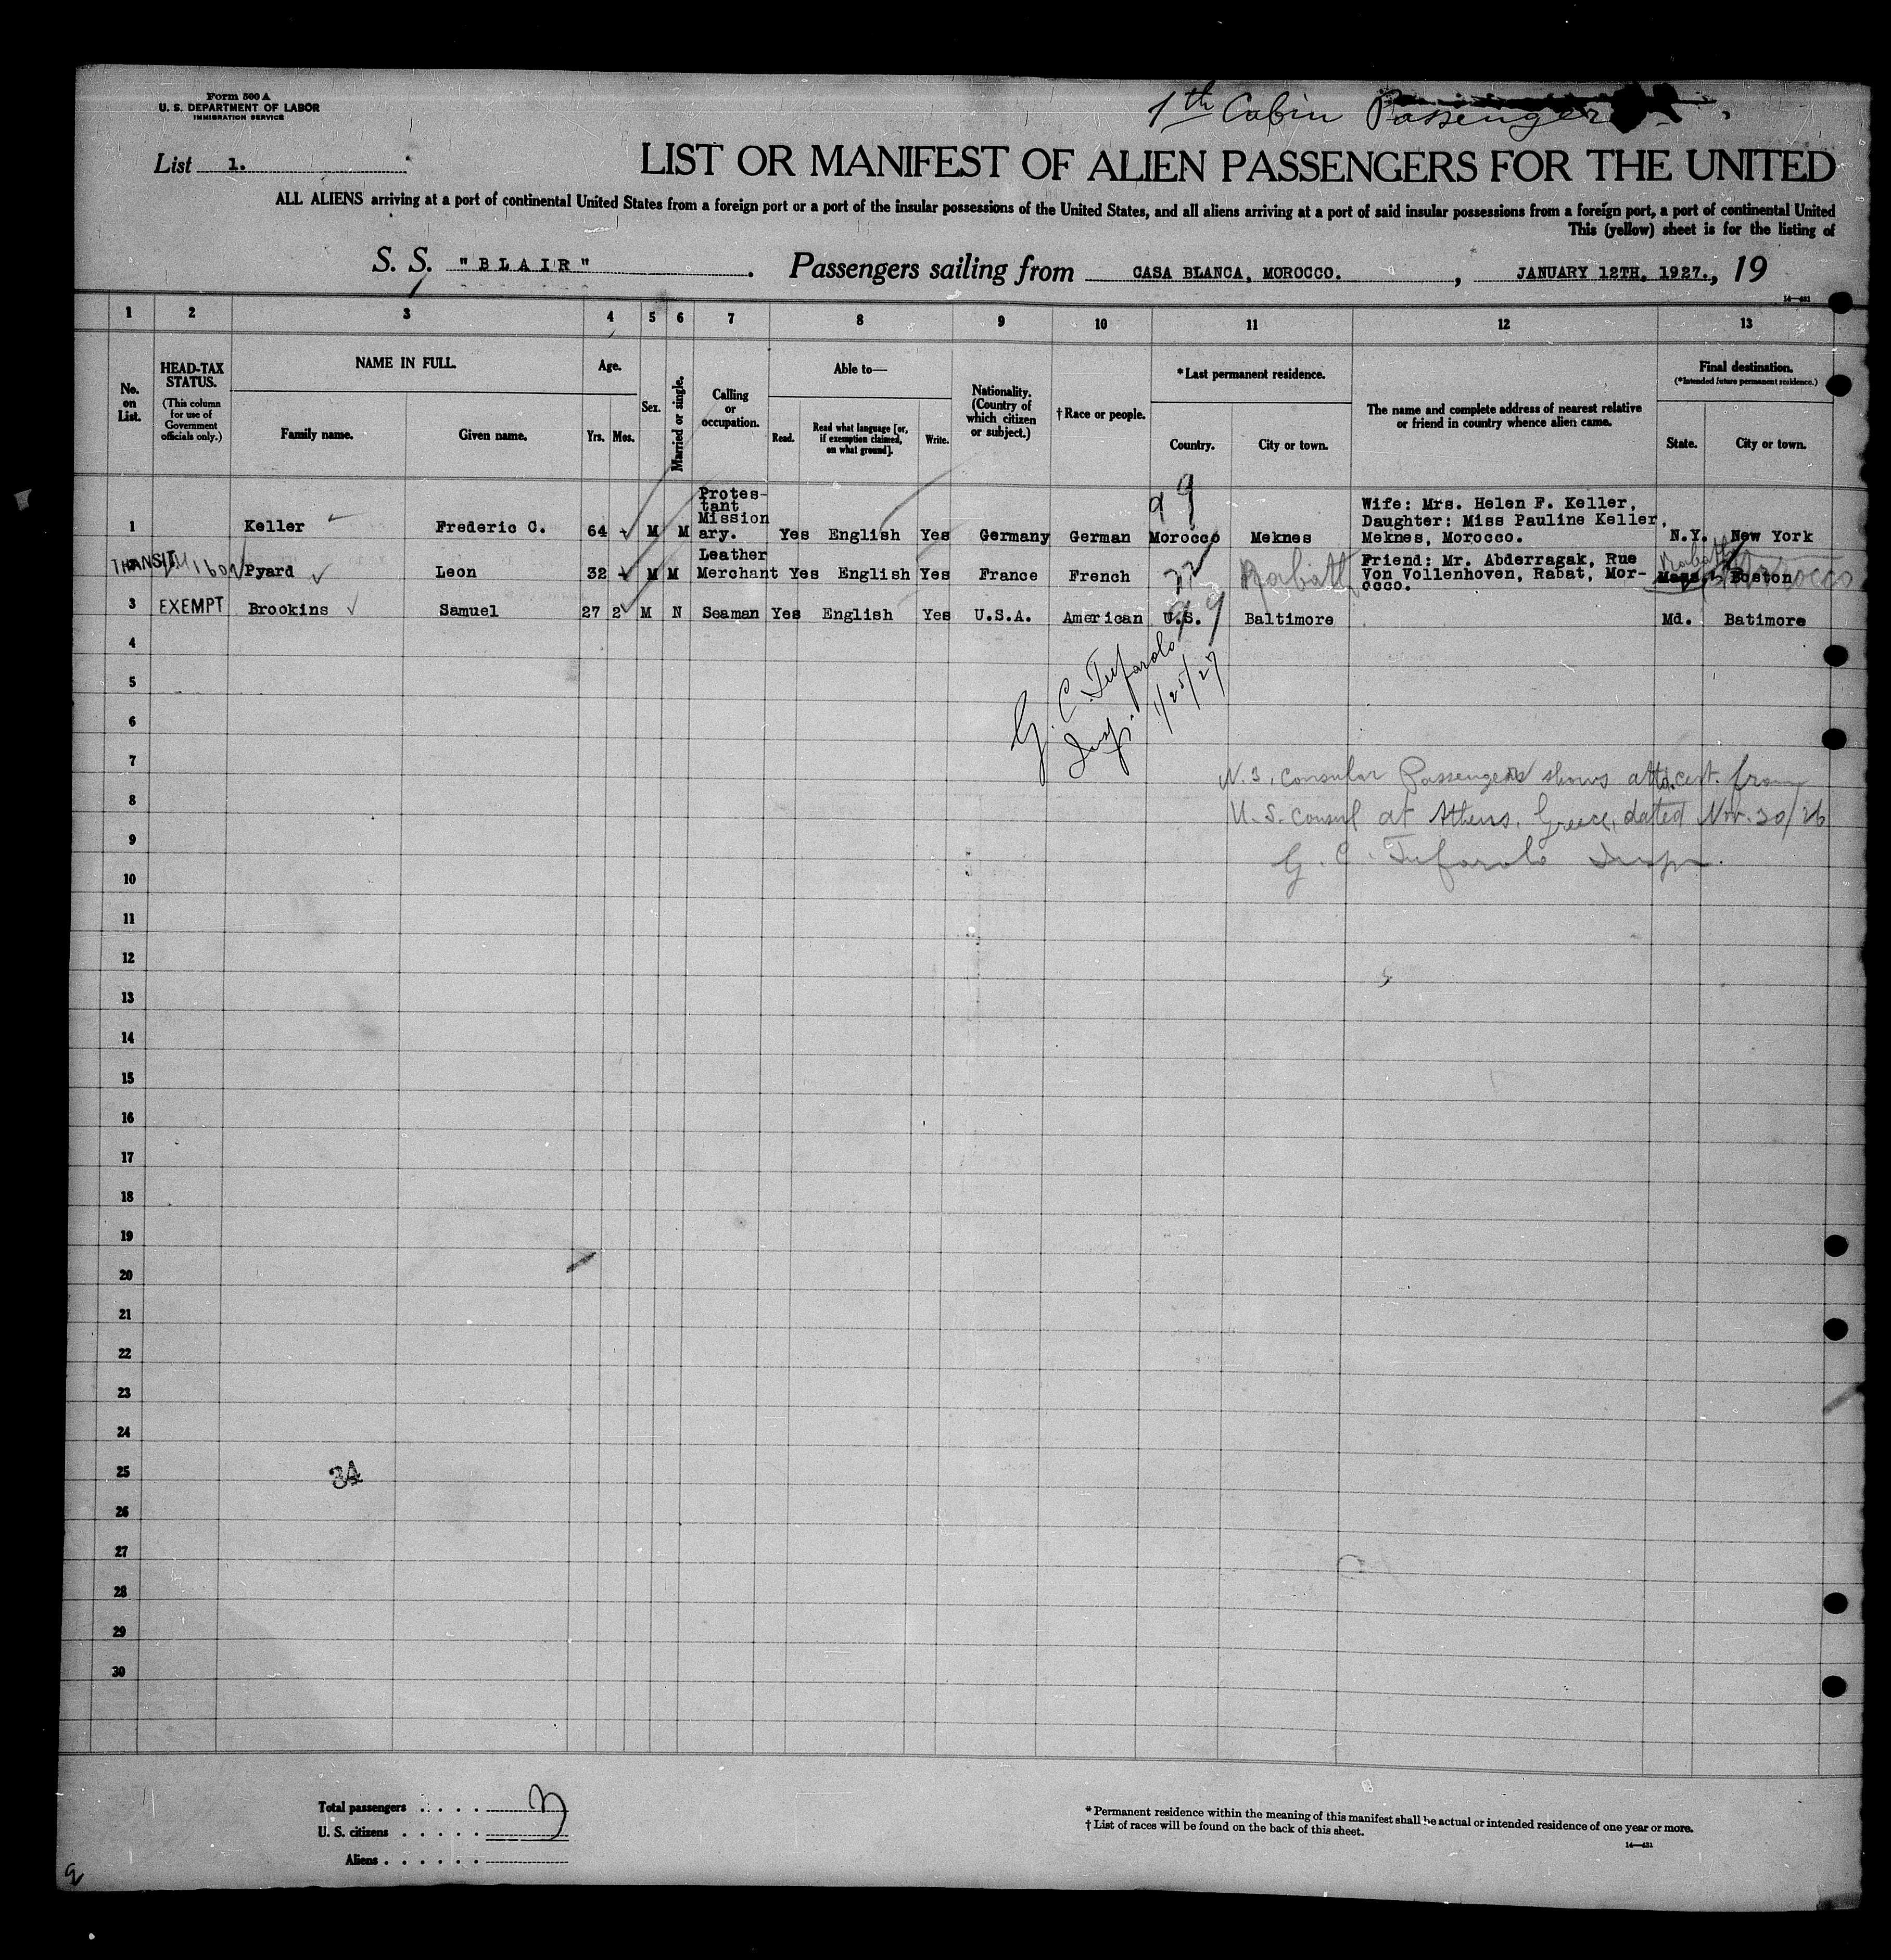 Form 500 A
U. S. DEPARTMENT OF LABOR
IMMIGRATION SERVICE
1th Cabin Passenger
List 1.
LIST OR MANIFEST OF ALIEN PASSENGERS FOR THE UNITED
ALL ALIENS arriving at a port of continental United States from a foreign port or a port of the insular possessions of the United States, and all aliens arriving at a port of said insular possessions from a foreign port, a port of continental United
This (yellow) sheet is for the listing of
S. S. "BLAIR" . Passengers sailing from CASA BLANCA, MOROCCO. , JANUARY 12TH, 1927., 19
14—431
1 2 3 4 5 6 7 8 9 10 11 12 13
No. on List.
HEAD-TAX STATUS.
(This column for use of Government officials only.)
NAME IN FULL.
Family name. Given name.
Age.
Yrs. Mos.
Sex.
Married or single.
Calling or occupation.
Able to—
Read. Read what language [or, if exemption claimed, on what ground]. Write.
Nationality. (Country of which citizen or subject.)
† Race or people.
* Last permanent residence.
Country. City or town.
The name and complete address of nearest relative or friend in country whence alien came.
Final destination.
(*Intended future permanent residence.)
State. City or town.
99
1 Keller Frederic C. 64 M M Protes-tant Mission ary. Yes English Yes Germany German Morocco Meknes Wife: Mrs. Helen F. Keller, Daughter: Miss Pauline Keller, Meknes, Morocco. N.Y. New York
TRANSIT Pyard Leon 32 M M Leather Merchant Yes English Yes France French Rabat Friend: Mr. Abderragak, Rue Von Vollenhoven, Rabat, Mor-occo. Mass Boston Rabat Morocco
3 EXEMPT Brookins Samuel 27 2 M N Seaman Yes English Yes U.S.A. American U.S. 99 Baltimore Md. Batimore
4
5
6
G. C. Tufarolo
Insp. 1/25/27
7
N.3, Consular Passengers shows cert. from
8
U.S. Consul at Athens, Greece, dated Nov. 30/26
9
G. C. Tufarolo Insp.
10
11
12
13
14
15
16
17
18
19
20
21
22
23
24
25
34
26
27
28
29
30
Total passengers . . . . . 3
U. S. citizens . . . . .
Aliens . . . . . .
* Permanent residence within the meaning of this manifest shall be actual or intended residence of one year or more.
† List of races will be found on the back of this sheet.
14—431